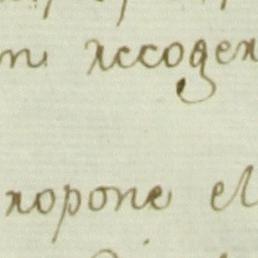 n rccoger
ropone el